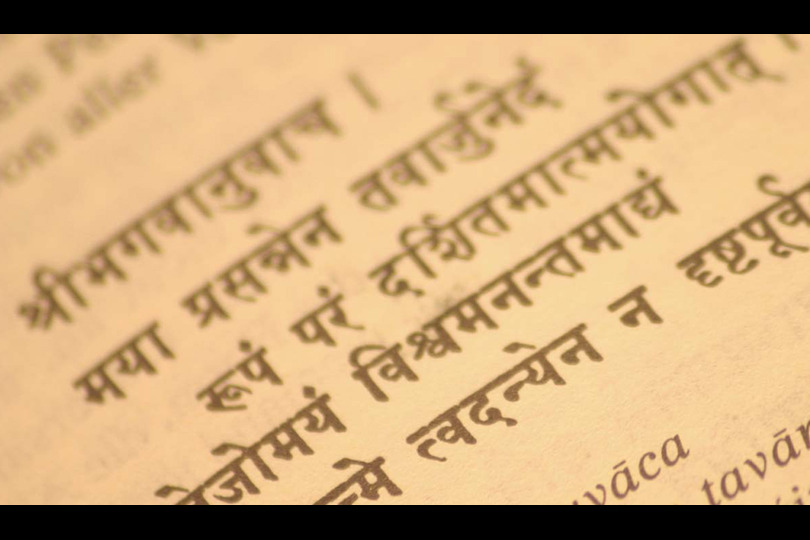 on aller
श्रीभगवानुवाच ।
मया प्रसन्नेन तवार्जुनेदं
रूपं परं दर्शितमात्मयोगात् ।
तेजोमयं विश्वमनन्तमाद्यं
न्मे त्वदन्येन न दृष्टपूर्व
vāca
tavār